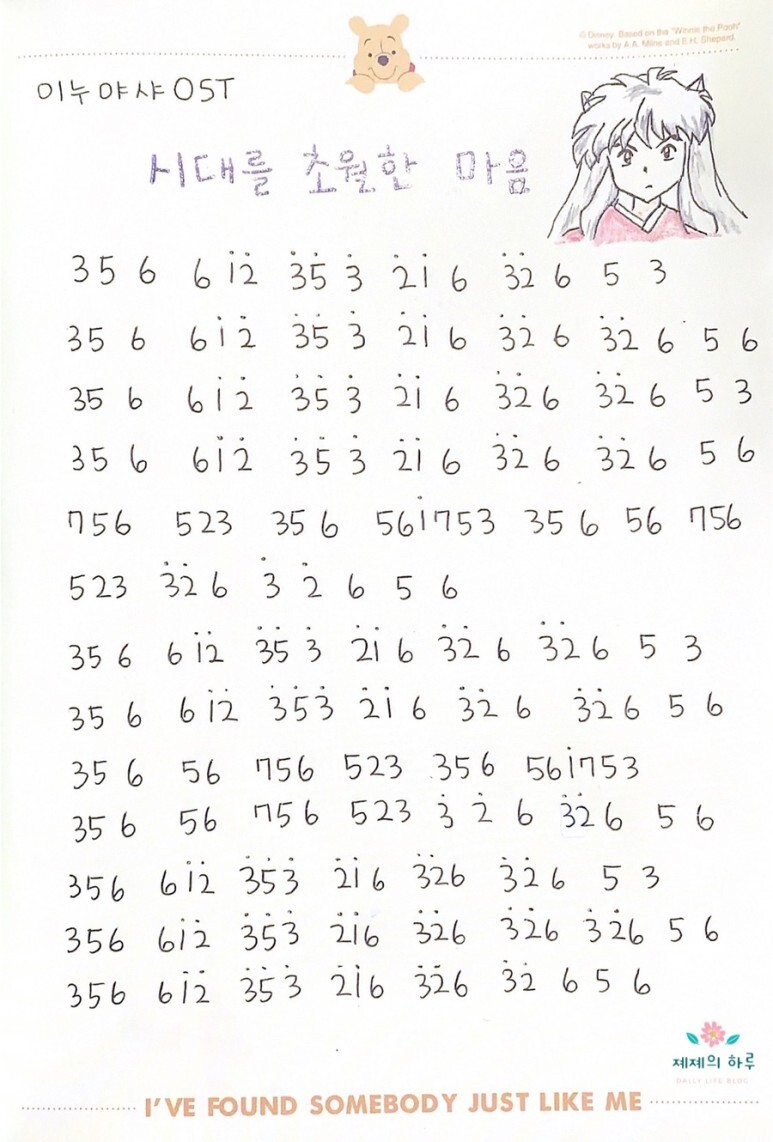 © Disney. Based on the "Winnie the Pooh"
works by A.A. Milne and E.H. Shepard.
이누야샤 OST
시대를 초월한 마음
3 5 6 6 i̇ 2̇ 3̇ 5̇ 3̇ 2̇ i̇ 6 3̇ 2̇ 6 5 3
3 5 6 6 i̇ 2̇ 3̇ 5̇ 3̇ 2̇ i̇ 6 3̇ 2̇ 6 3̇ 2̇ 6 5 6
35 6 6 i̇ 2̇ 3̇ 5̇ 3̇ 2̇ i̇ 6 3̇ 2̇ 6 3̇ 2̇ 6 5 3
35 6 6 i̇ 2̇ 3̇ 5̇ 3̇ 2̇ i̇ 6 3̇ 2̇ 6 3̇ 2̇ 6 5 6
756 523 35 6 561̇753 35 6 56 756
523 3̇2̇ 6 3̇ 2̇ 6 5 6
35 6 6 1̇2̇ 3̇5̇ 3̇ 2̇1̇ 6 3̇2̇ 6 3̇2̇ 6 5 3
35 6 6 1̇2̇ 3̇5̇3̇ 2̇1̇ 6 3̇2̇ 6 3̇2̇ 6 5 6
35 6 56 756 523 356 561̇753
35 6 56 756 523 3̇ 2̇ 6 3̇2̇ 6 5 6
356 61̇2̇ 3̇5̇3̇ 2̇1̇6 3̇2̇6 3̇2̇6 5 3
356 61̇2̇ 3̇5̇3̇ 2̇1̇6 3̇2̇6 3̇2̇6 3̇2̇6 5 6
356 61̇2̇ 3̇5̇3̇ 2̇1̇6 3̇2̇6 3̇2̇ 6 5 6
제제의 하루
DAILY LIFE BLOG
I'VE FOUND SOMEBODY JUST LIKE ME